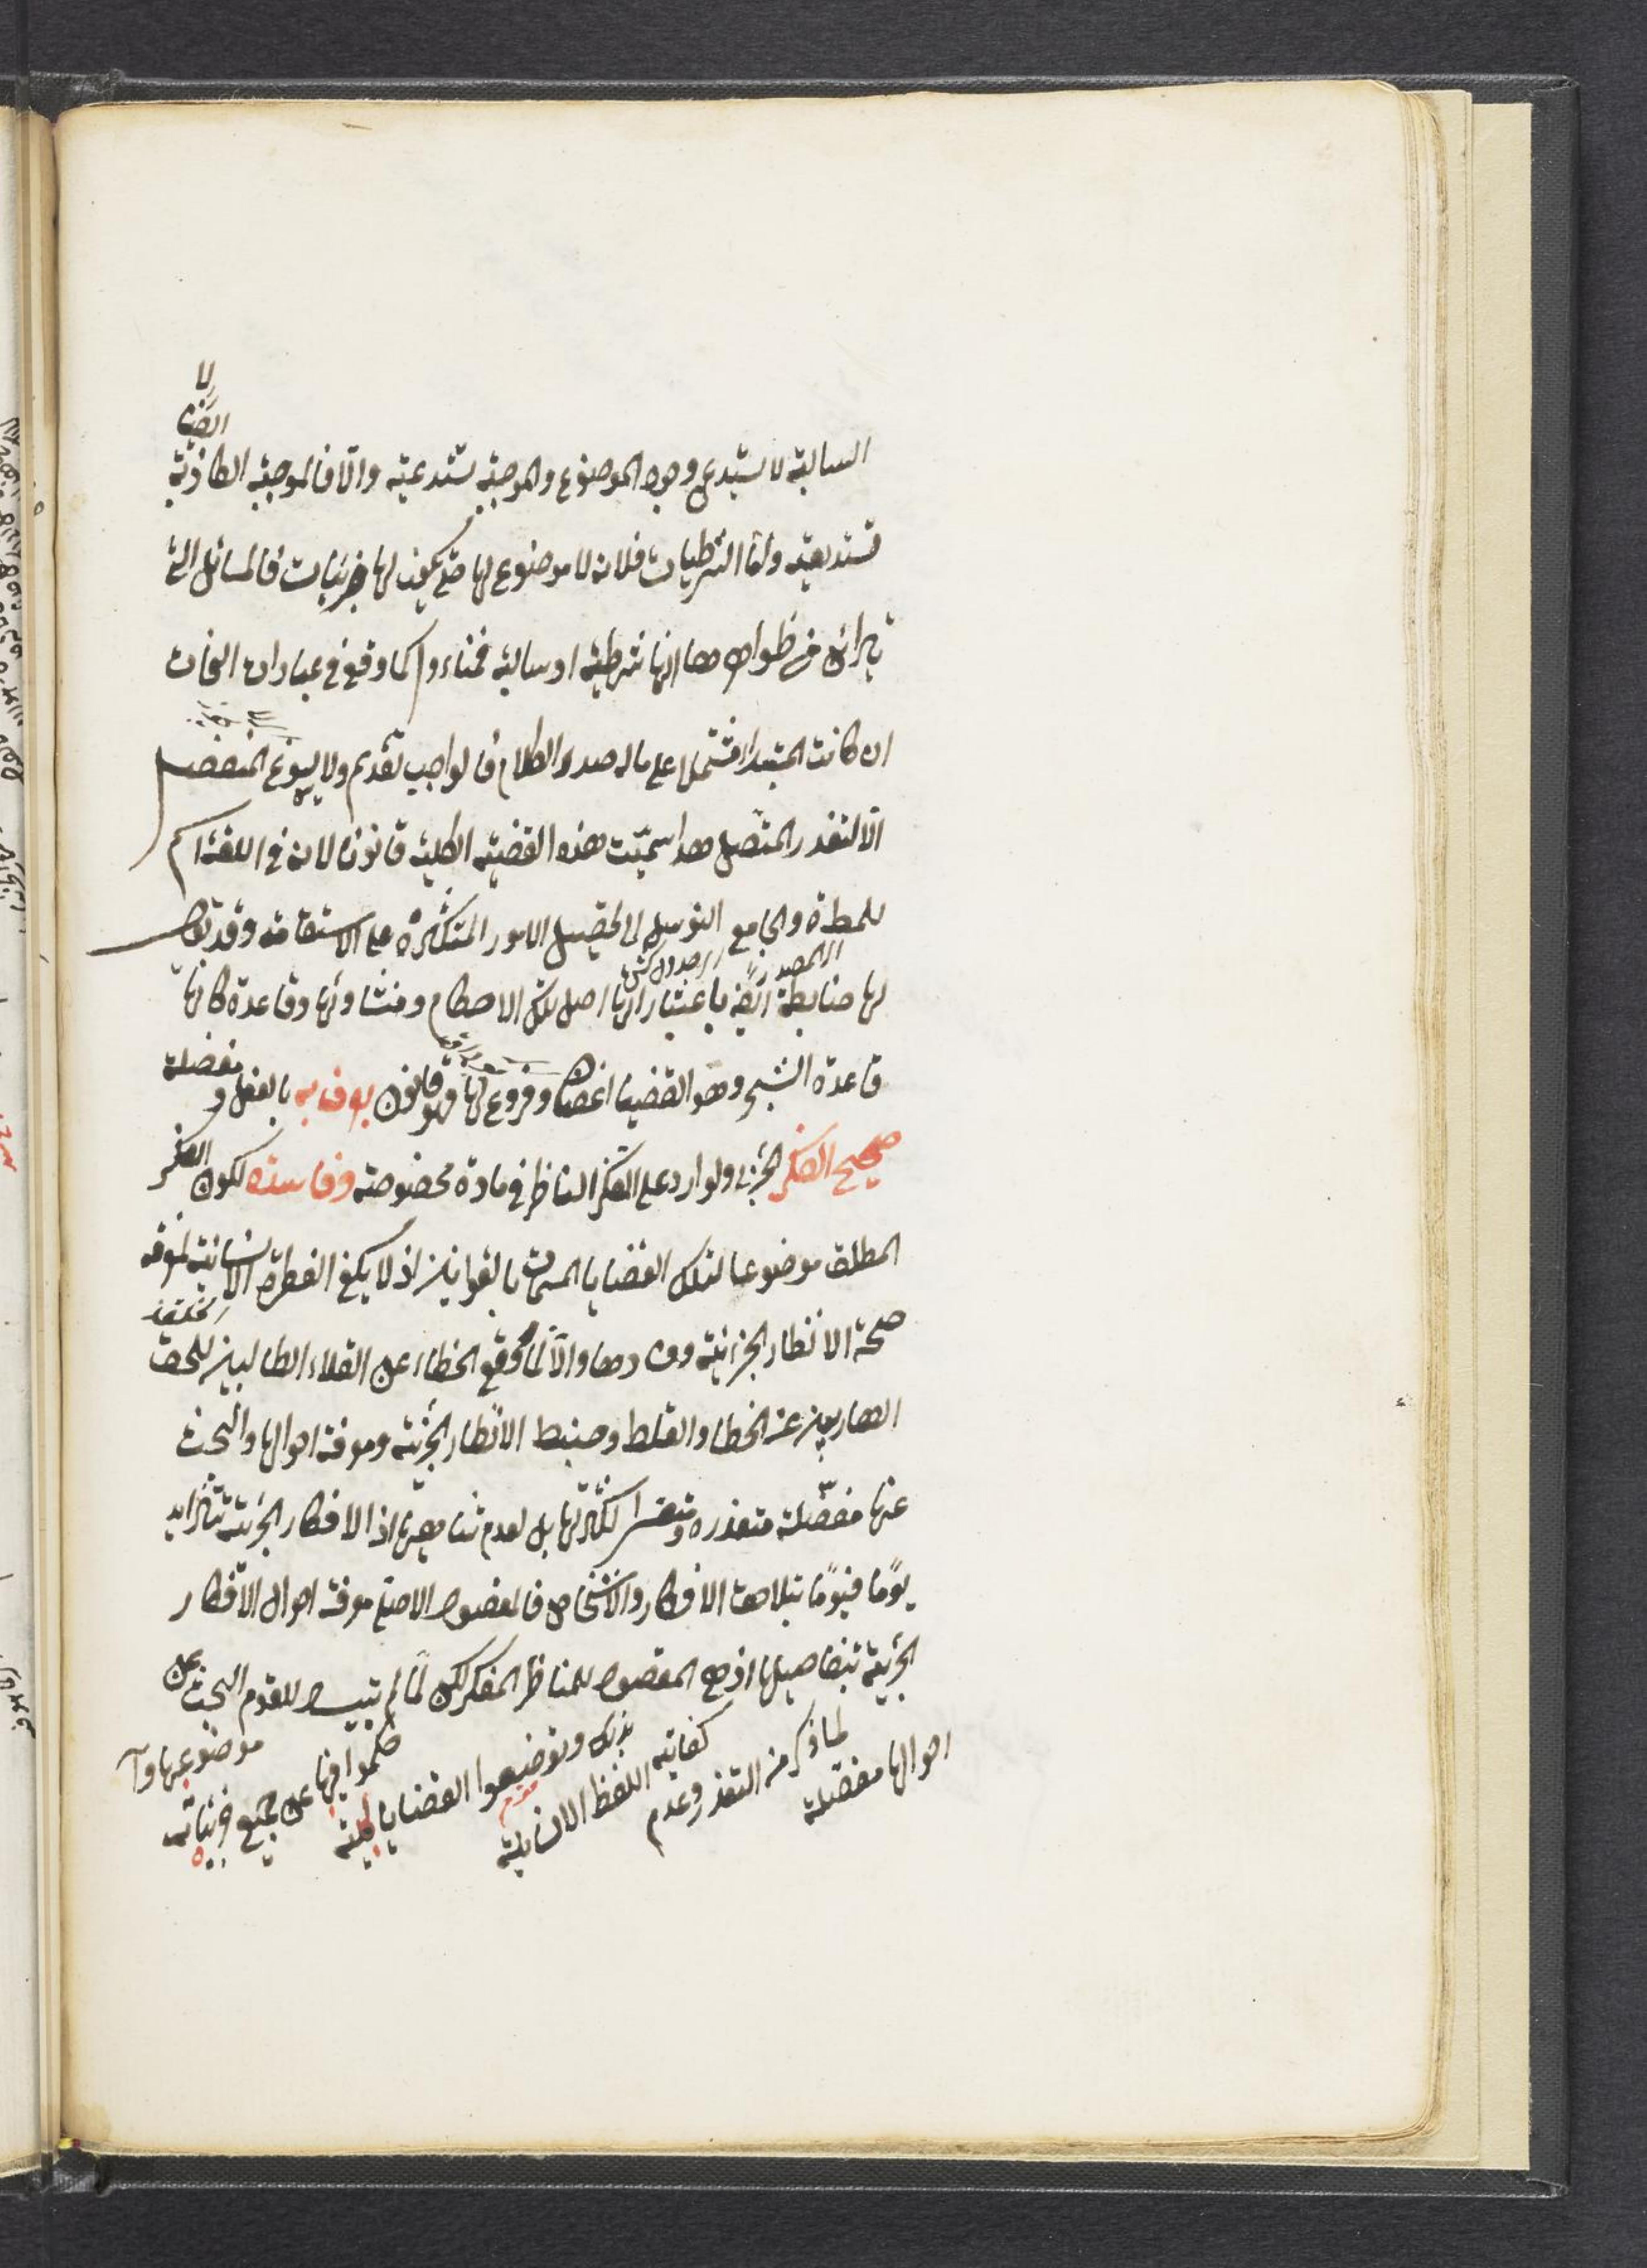 لا
ايضا
السالبة لا يستدعى وجود الموضوع والموجبة تستدعيه والا فالموجبة الكاذبة
تستدعيه واما الشرطيات فلانه لا موضوع لها حتى يكون لها جزئيات فالمسائل التى
يتراى من ظواهرها انها شرطية او سالبة كما وقع فى عبارات النحاة
ان كانت المبتدا مشتملا على ماله صدر الكلام فالواجب تقديم ولا يسوغ المنفصل
الا لتعذر المتصل سميت هذه القضية الكلية قانونا لانه فى اللغة اسم
للمسطرة والجامع التوسل الى تحصيل الامور المتكثرة على الاستقامة وقد يقال
لها ضابطة ايضا باعتبار انها اصل لتلك الاحكام ومنشاؤها وقاعدة كانها
قاعدة الشجر وهو القضايا اغصان وفروع لها وهو قانون يعرف به بالفعل و مفصلة
صحيح الفكر الجزئى ولوارد على الفكر الناظر فى مادة مخصوصة وفاسده لكون الفكر
المطلق موضوعا لتلك القضايا المسماة بالقوانين اذ لا يكفى الفطرة الانسانية لمعرفة
صحة الانظار الجزئية وفسادها والا لما وقع الخطاء عن العقلاء الطالبين للحق
الهاربين عن الخطا والغلط وضبط الانظار الجزئية ومعرفة احوالها والبحث
عنها مفصلة متعذرة ومتعسر لكثرتها بل لعدم تناهيها اذ الافكار الجزئية تتزايد
يومًا فيومًا بتلاحق الافكار والاشخاص فالمقصود الاصلى معرفة احوال الافكار
الجزئية بتفاصيلها اذ هى المقصود للناظر المفكر لكن لما لم يتيسر للقوم البحث عن
احوالها مفصلة
لما ذكر من التعذر وعدم
كفاية
بذلك وضعوا القضايا كلية
حكموا فيها على جميع جزئيات
موضوعها و